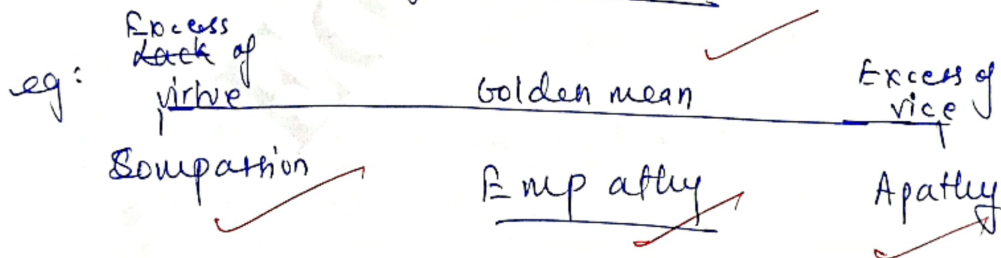 Excess
Lack of
eg: virtue Golden mean Excess of
vice
Compassion Empathy Apathy